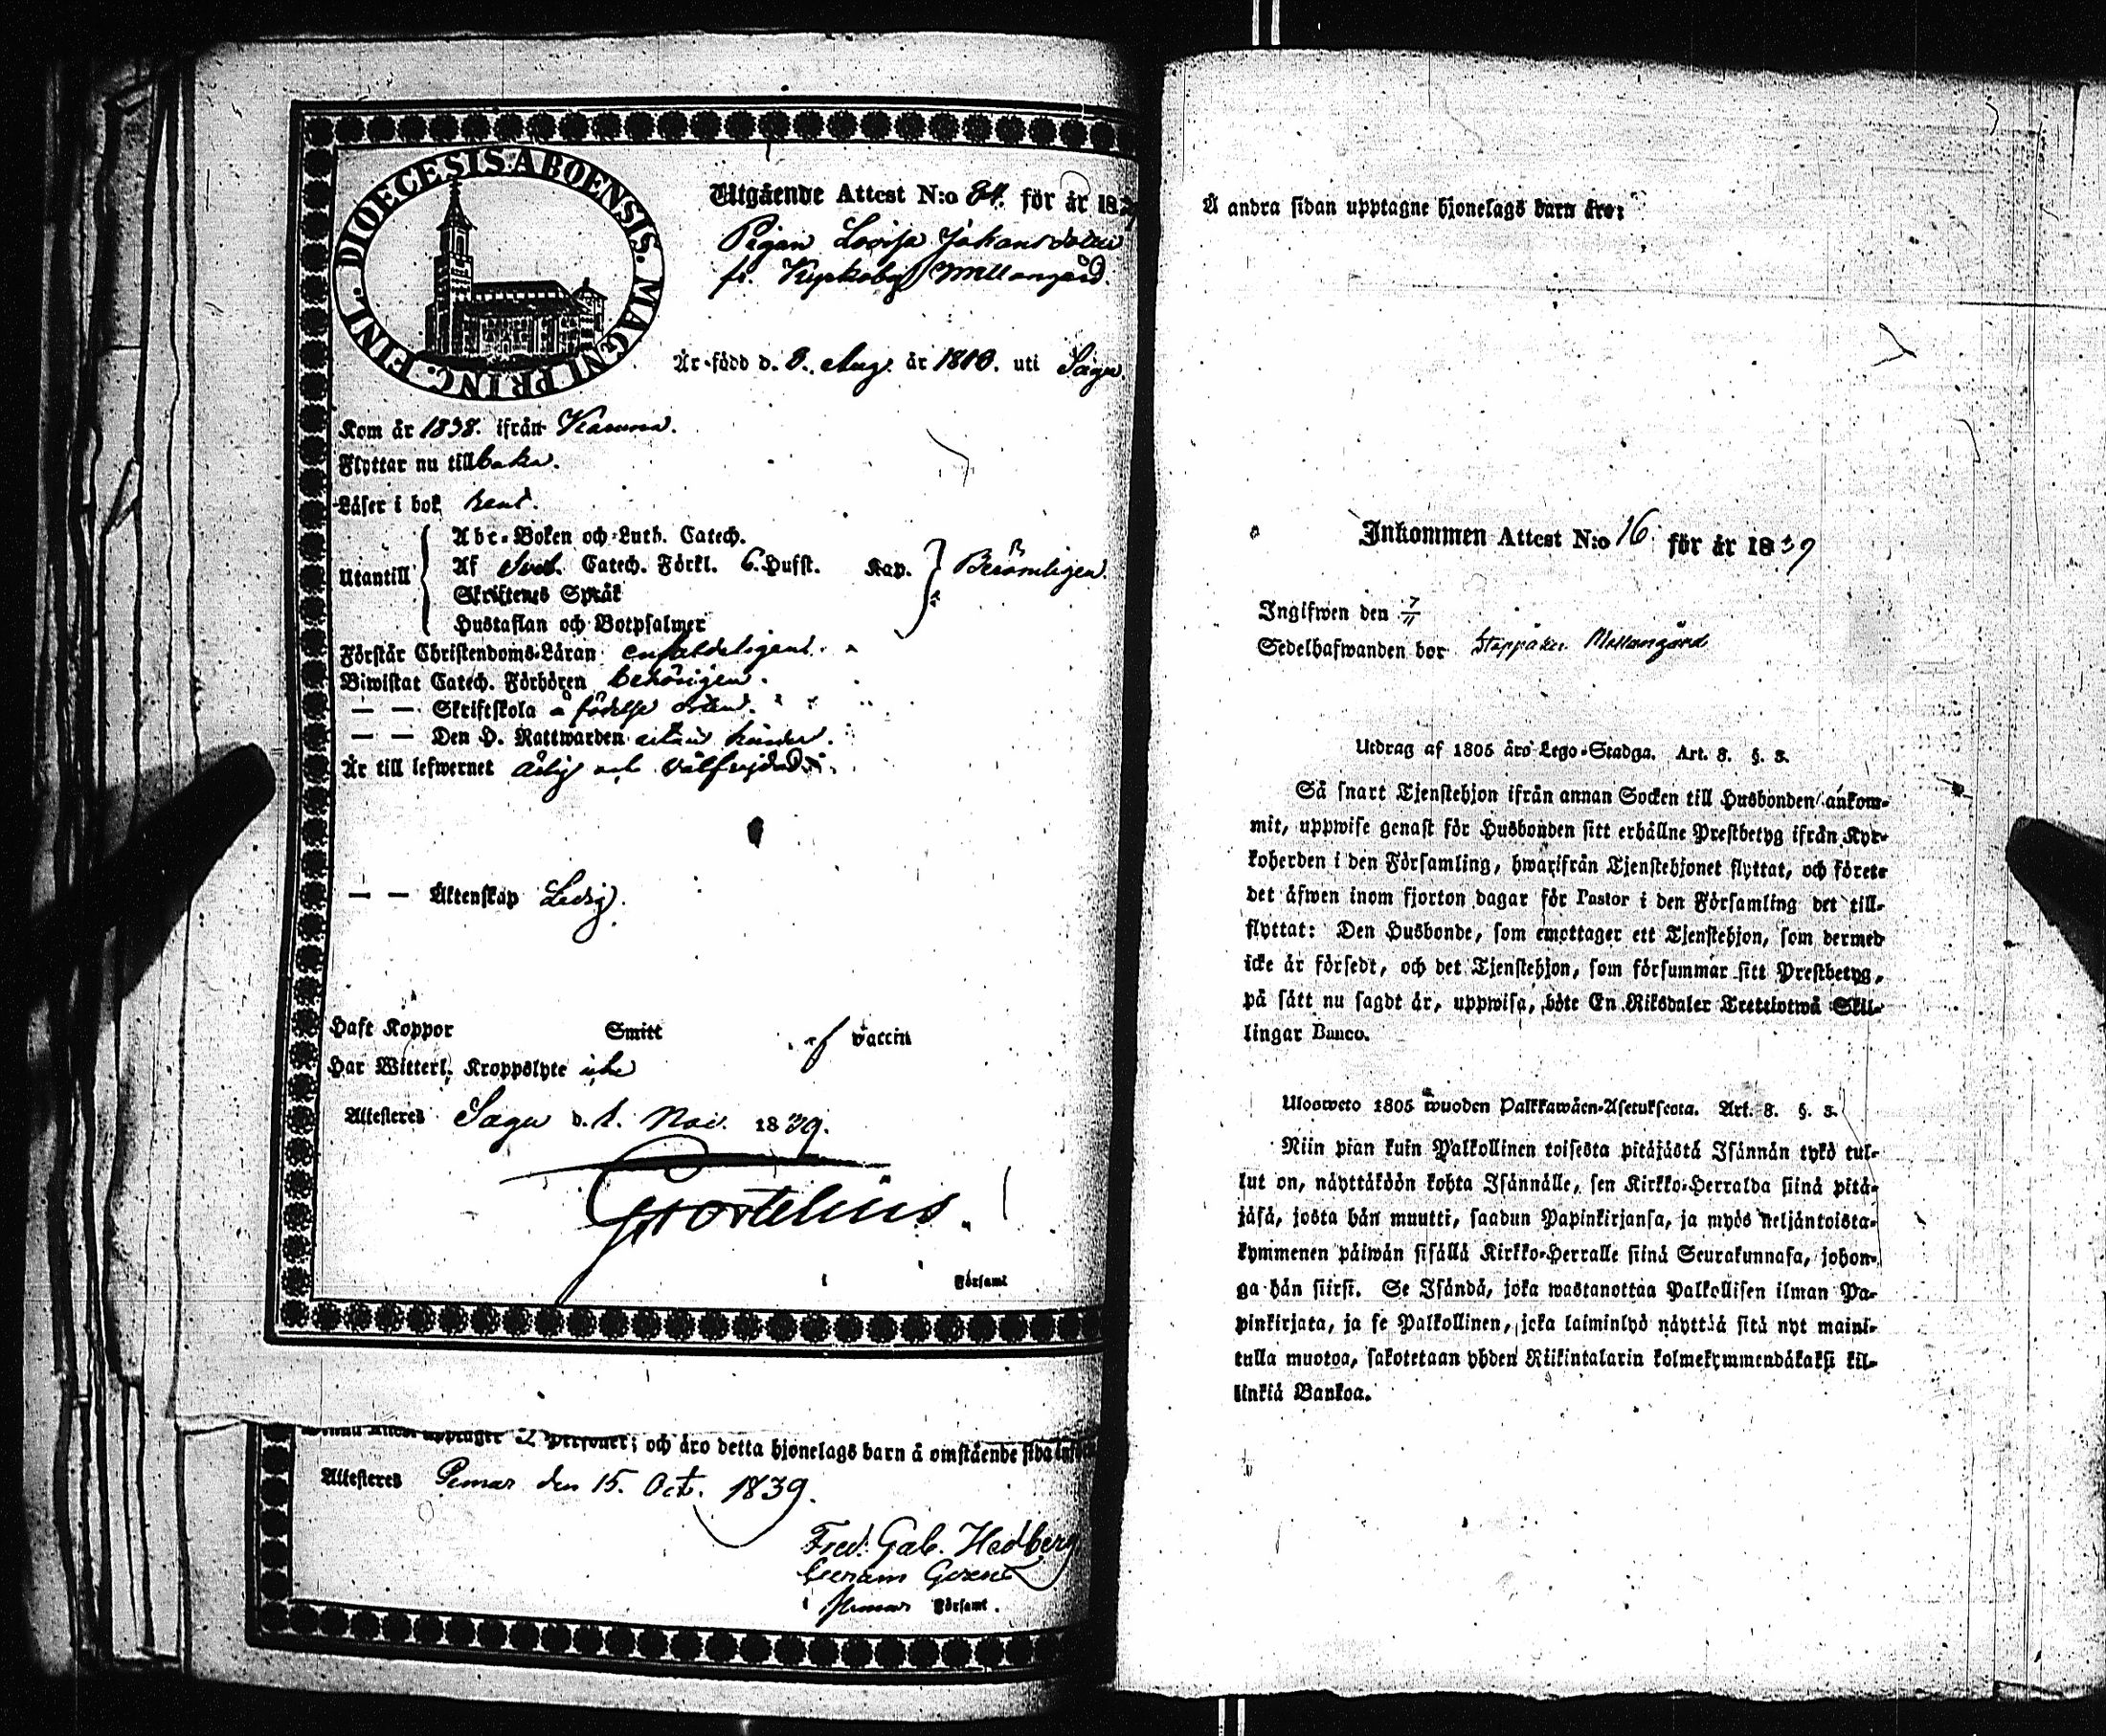 DIOECESIS ABOENSIS. MAGNI PRINC. FINL.
Utgående Attest N:o 84. för år 18
Pigan Lovisa Johansdotter
fr. Kyrkoby Mellangård.
Är född d. 8. Aug. år 1818. uti Sagu.
Kom år 1838. ifrån Karuna.
Flyttar nu tillbaka.
Läser i bok rent.
Utantill
Abc-Boken och Luth. Catech.
Af Sveb. Catech. Förkl. 6. Hufst. Kap.
Skriftenes Språk
Hustaflan och Botpsalmer
Berömligen.
Förstår Christendoms-Läran enfaldeligen.
Biwistat Catech. Förhören behörigen.
— — Skriftskola å födelse orten.
— — Den H. Nattwarden utan hinder.
Är till lefwernet ärlig och välfrejdad.
— — Äktenskap Ledig.
Haft Koppor Smitt af vaccin
Har Witterl. Kroppslyte icke
Attesteres Sagu d. 1. Nov. 1839.
i Församl
2 Personer; och äro detta hjonelags barn å omstående sida
Attesteres Pemar den 15. Oct. 1839.
Fred. Gab. Hedberg
i Pemar Församl.
Å andra sidan upptagne hjonelags barn äro:
Inkommen Attest N:o 16 för år 1839
Ingifwen den 7/11
Sedelhafwanden bor Mellangård
Utdrag af 1805 års Lego-Stadga. Art. 3. §. 3.
Så snart Tjenstehjon ifrån annan Socken till Husbonden ankom-
mit, uppwise genast för Husbonden sitt erhållne Prestbetyg ifrån Kyr-
koherden i den Församling, hwarifrån Tjenstehjonet flyttat, och förete
det äfwen inom fjorton dagar för Pastor i den Församling det till-
flyttat: Den Husbonde, som emottager ett Tjenstehjon, som dermed
icke är försedt, och det Tjenstehjon, som försummar sitt Prestbetyg,
på sätt nu sagdt är, uppwisa, böte En Riksdaler Trettiotwå Skil-
lingar Banco.
Ulosweto 1805 wuoden Palkkawäen-Asetuksesta. Art. 3. §. 3.
Niin pian kuin Palkollinen toisesta pitäjästä Isännän tykö tul-
lut on, näyttäköön kohta Isännälle, sen Kirkko-Herralda siinä pitä-
jäsä, josta hän muutti, saadun Papinkirjansa, ja myös neljäntoista-
kymmenen päiwän sisällä Kirkko-Herralle siinä Seurakunnasa, johon-
ga hän siirsi. Se Isändä, joka wastanottaa Palkollisen ilman Pa-
pinkirjata, ja se Palkollinen, joka laiminlyö näyttää sitä nyt maini-
tulla muotoa, sakotetaan yhden Riikintalarin kolmekymmendäkaksi kil-
linkiä Bankoa.